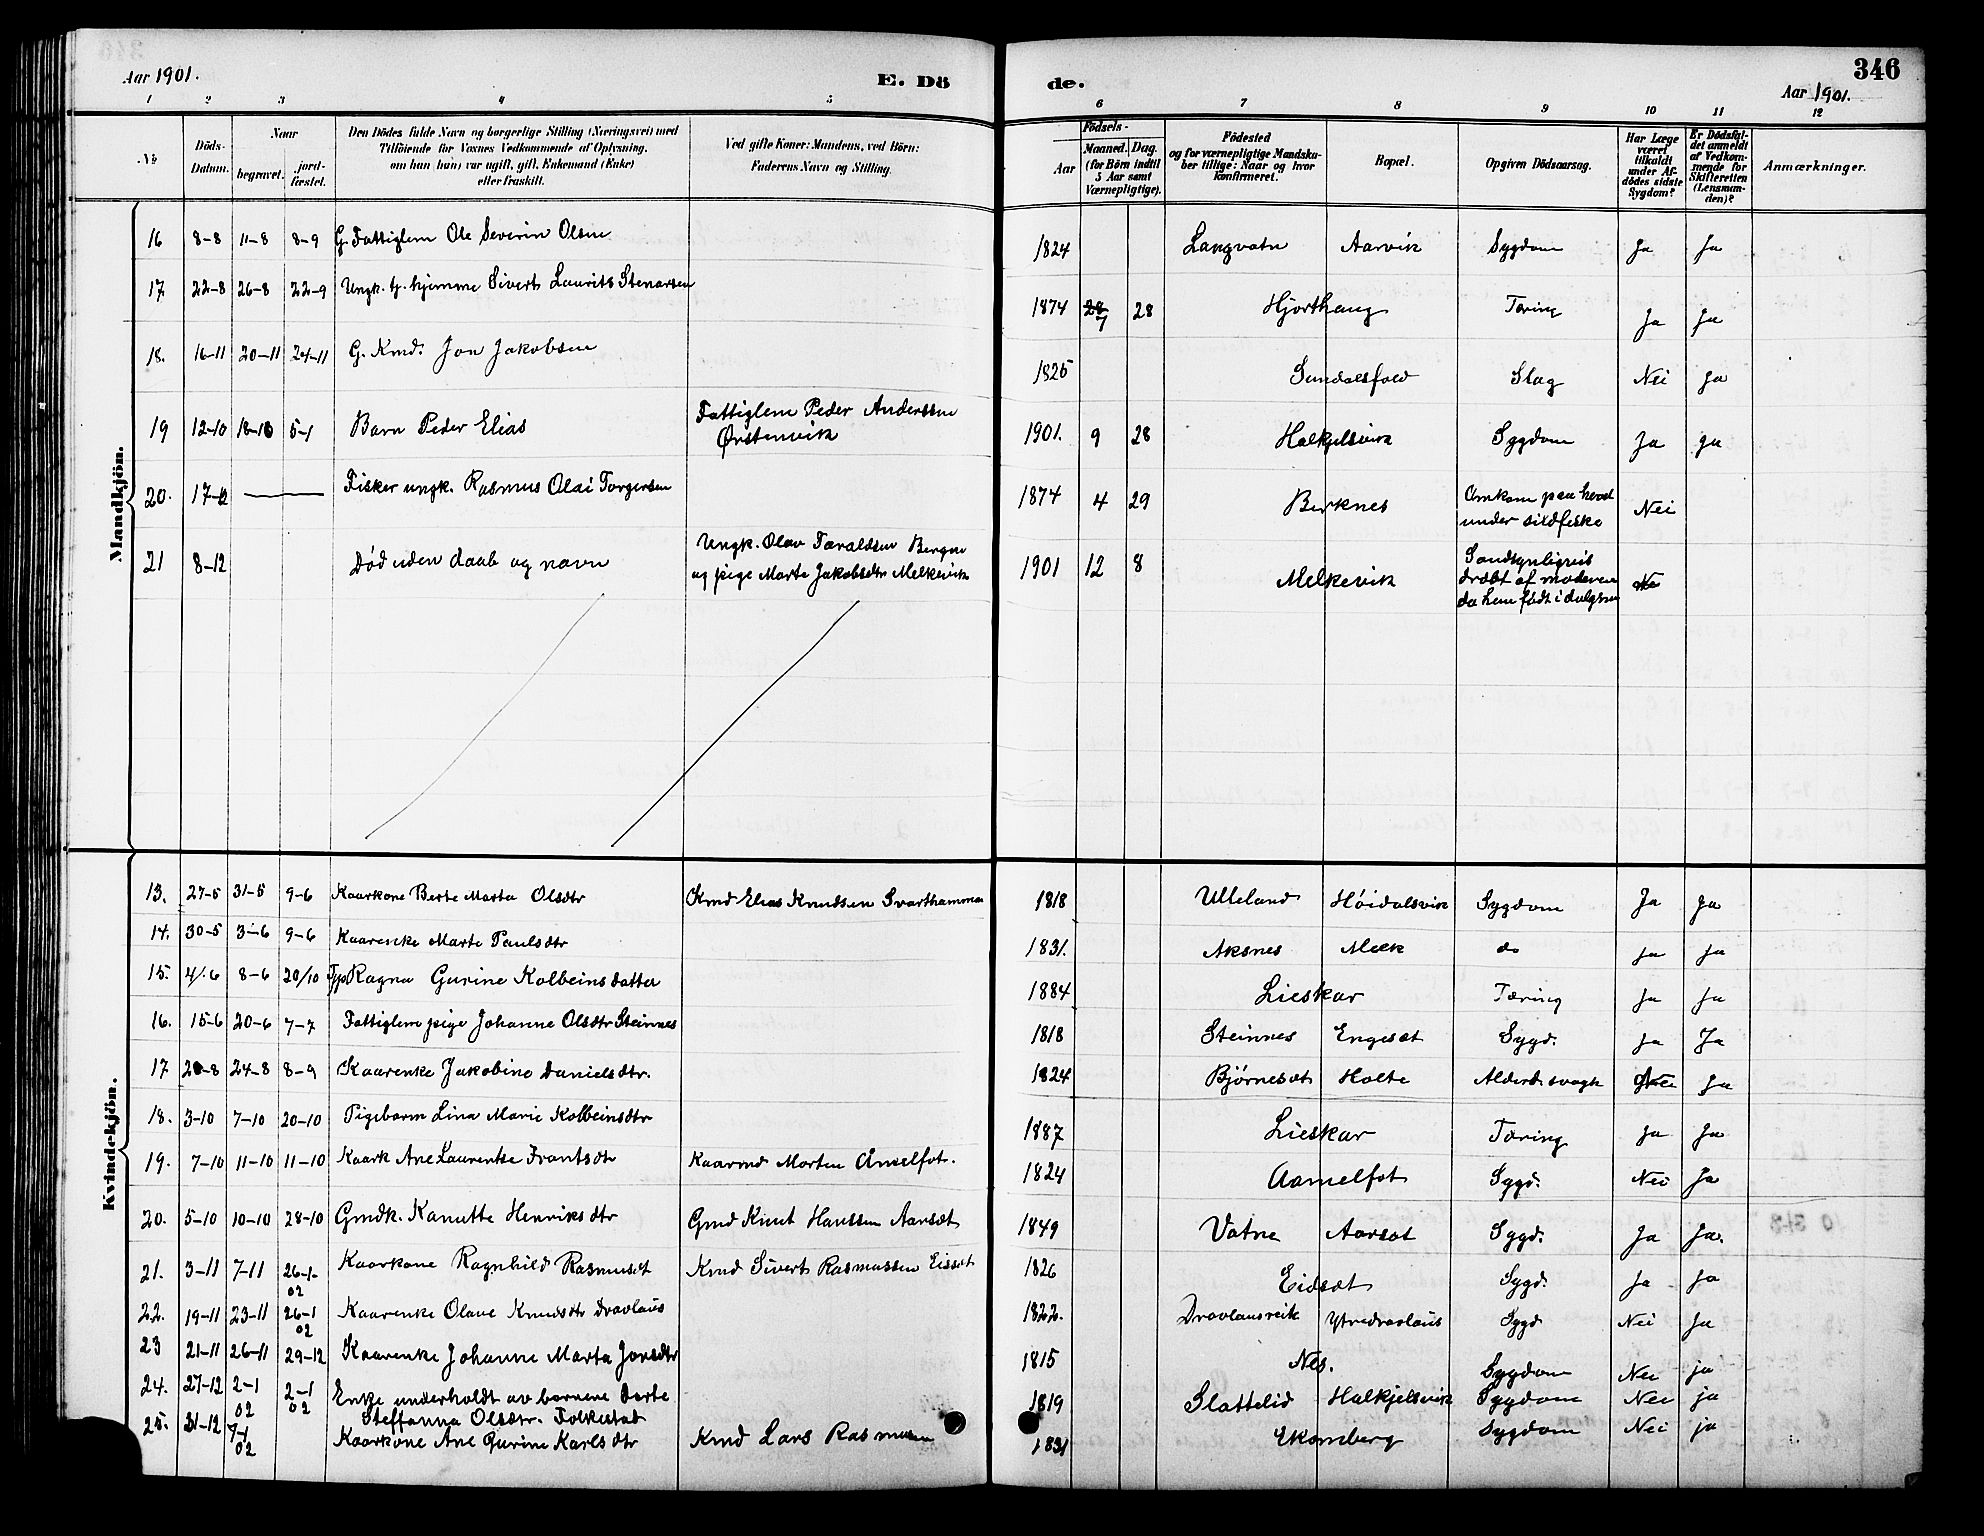 Aar 1901.
E. Dö
de.
346
Aar 1901.
1 2 3 4 5 6 7 8 9 10 11 12
No
Döds-
Datum.
Naar
begravet.
jord-
fæstet.
Den Dödes fulde Navn og borgerlige Stilling (Næringsvei) med
Tilföiende for Voxnes Vedkommende af Oplysning,
om han (hun) var ugift, gift, Enkemand (Enke)
eller fraskilt.
Ved gifte Koner: Mandens, ved Börn:
Faderens Navn og Stilling.
Födsels-
Aar
Maaned. Dag.
(for Börn indtil
5 Aar samt
Værnepligtige).
Födested
og for værnepligtige Mandska-
ber tillige: Naar og hvor
konfirmeret.
Bopæl.
Opgiven Dödsaarsag.
Har Læge
været
tilkaldt
under Af-
dödes sidste
Sygdom?
Er Dödsfal-
det anmeldt
af Vedkom-
mende for
Skifteretten
(Lensman-
den)?
Anmærkninger.
Mandkjön.
16 8-8 11-8 8-9 G. Fattiglem Ole Severin Olsen 1824 Langvatn Aarvik Sygdom Ja Ja
17. 22-8 26-8 22-9 Ungk. hj. hjemme Sivert Laurits Stenarsen 1874 7 28 Hjorthaug Tæring Ja Ja
18. 16-11 20-11 24-11 G. Kmd. Jon Jakobsen 1825 Sundalsfold Slag Nei Ja
19 12-10 18-10 5-1 Barn Peder Elias Fattiglem Peder Anderssen
Ørstenvik 1901. 9 28 Halkjelsvik Sygdom Ja ja
20. 17-2 Fisker ungk. Rasmus Olai Torgersen 1874 4 29 Berknes Omkom paa havet
under sildfiske Nei
21 8-12 Død uden daab og navn Ungk. Olav Taraldsen Bergen
og pige Marte Jakobsdtr Melkevik 1901 12 8 Melkevik Sandsynligvis
dræbt af moderen
da hun født i dølgsm Nei
Kvindekjön.
13. 27-5 31-5 9-6 Kaarkone Berte Marta Olsdtr Kmd Elias Knudsen Svarthammer 1818 Ulleland Høidalsvik Sygdom Ja ja
14. 30-5 3-6 9-6 Kaarenke Marte Paulsdtr 1831. Aksnes Melk do Ja Ja
15. 4/6 8-6 20/10 Tjp Ragna Gurine Kolbeinsdatter 1884 Lieskar Tæring Ja Ja
16. 15-6 20-6 7-7 Fattiglem pige Johanne Olsdtr Steinnes 1818 Steinnes Engeset Sygd. Ja Ja
17 20-8 24-8 8-9 Kaarenke Jakobine Danielsdtr. 1824 Bjørneset Holte Alderdsvagh Nei Ja
18. 3-10 7-10 20-10 Pigebarn Lina Marie Kolbeinsdtr 1887 Lieskar Tæring Ja Ja
19. 7-10 11-10 11-10 Kaark Ane Laurentse Frantsdtr Kaarmd Morten Åmelfot. 1824 Aamelfot Sygd. Nei Ja
20. 5-10 10-10 28-10 Gmdk. Kanutte Henriksdtr Gmd Knut Hanssen Aarsæt 1849 Vatne Aarsæt Sygd. Ja Ja.
21. 3-11 7-11 26-1-
02 Kaarkone Ragnhild Rasmusdt Kmd Sivert Rasmussen Eidsæt 1826 Eidsæt Sygd. Ja Ja
22. 19-11 23-11 26-1
02 Kaarenke Olave Knudsdtr Dravlaus 1822. Dravlausreik Ytredravlaus Sygd Nei Ja
23 21-11 26-11 29-12 Kaarenke Johanne Marta Jonsdtr 1815 Nes. Sygdom Nei ja
24. 27-12 2-1
02 2-1
02 Enke underholdt av børnene Dorte
Steffanna Olsdtr. Folkestad 1819 Slattelid Halkjelsvik Sygdom Nei ja
25. 31-12 7-1
02 Kaarkone Ane Gurine Karlsdtr Kmd Lars Rasmussen 1831 Ekornberg Sygdom Nei ja